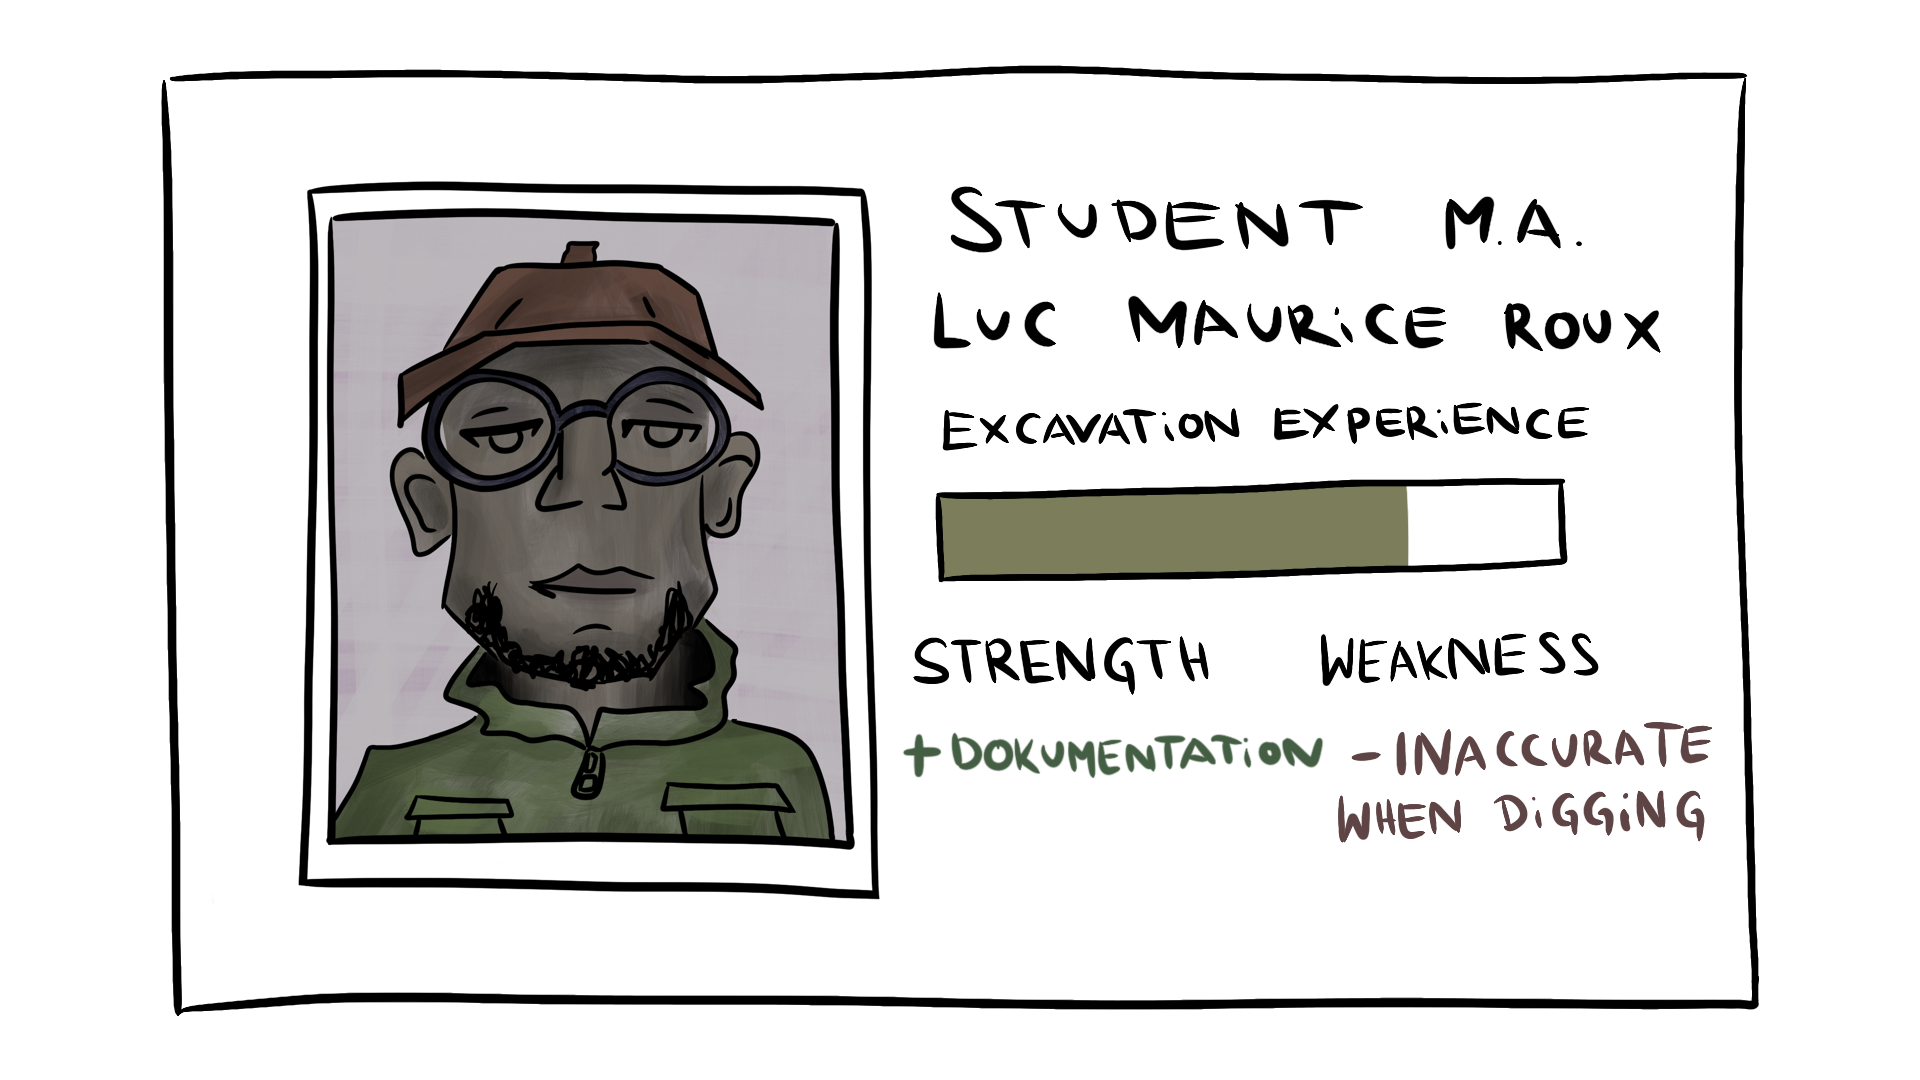 STUDENT M.A.
LUC MAURiCE ROUX
EXCAVATiON EXPERiENCE
STRENGTH WEAKNESS
+DOKUMENTATiON -INACCURATE
WHEN DiGGiNG